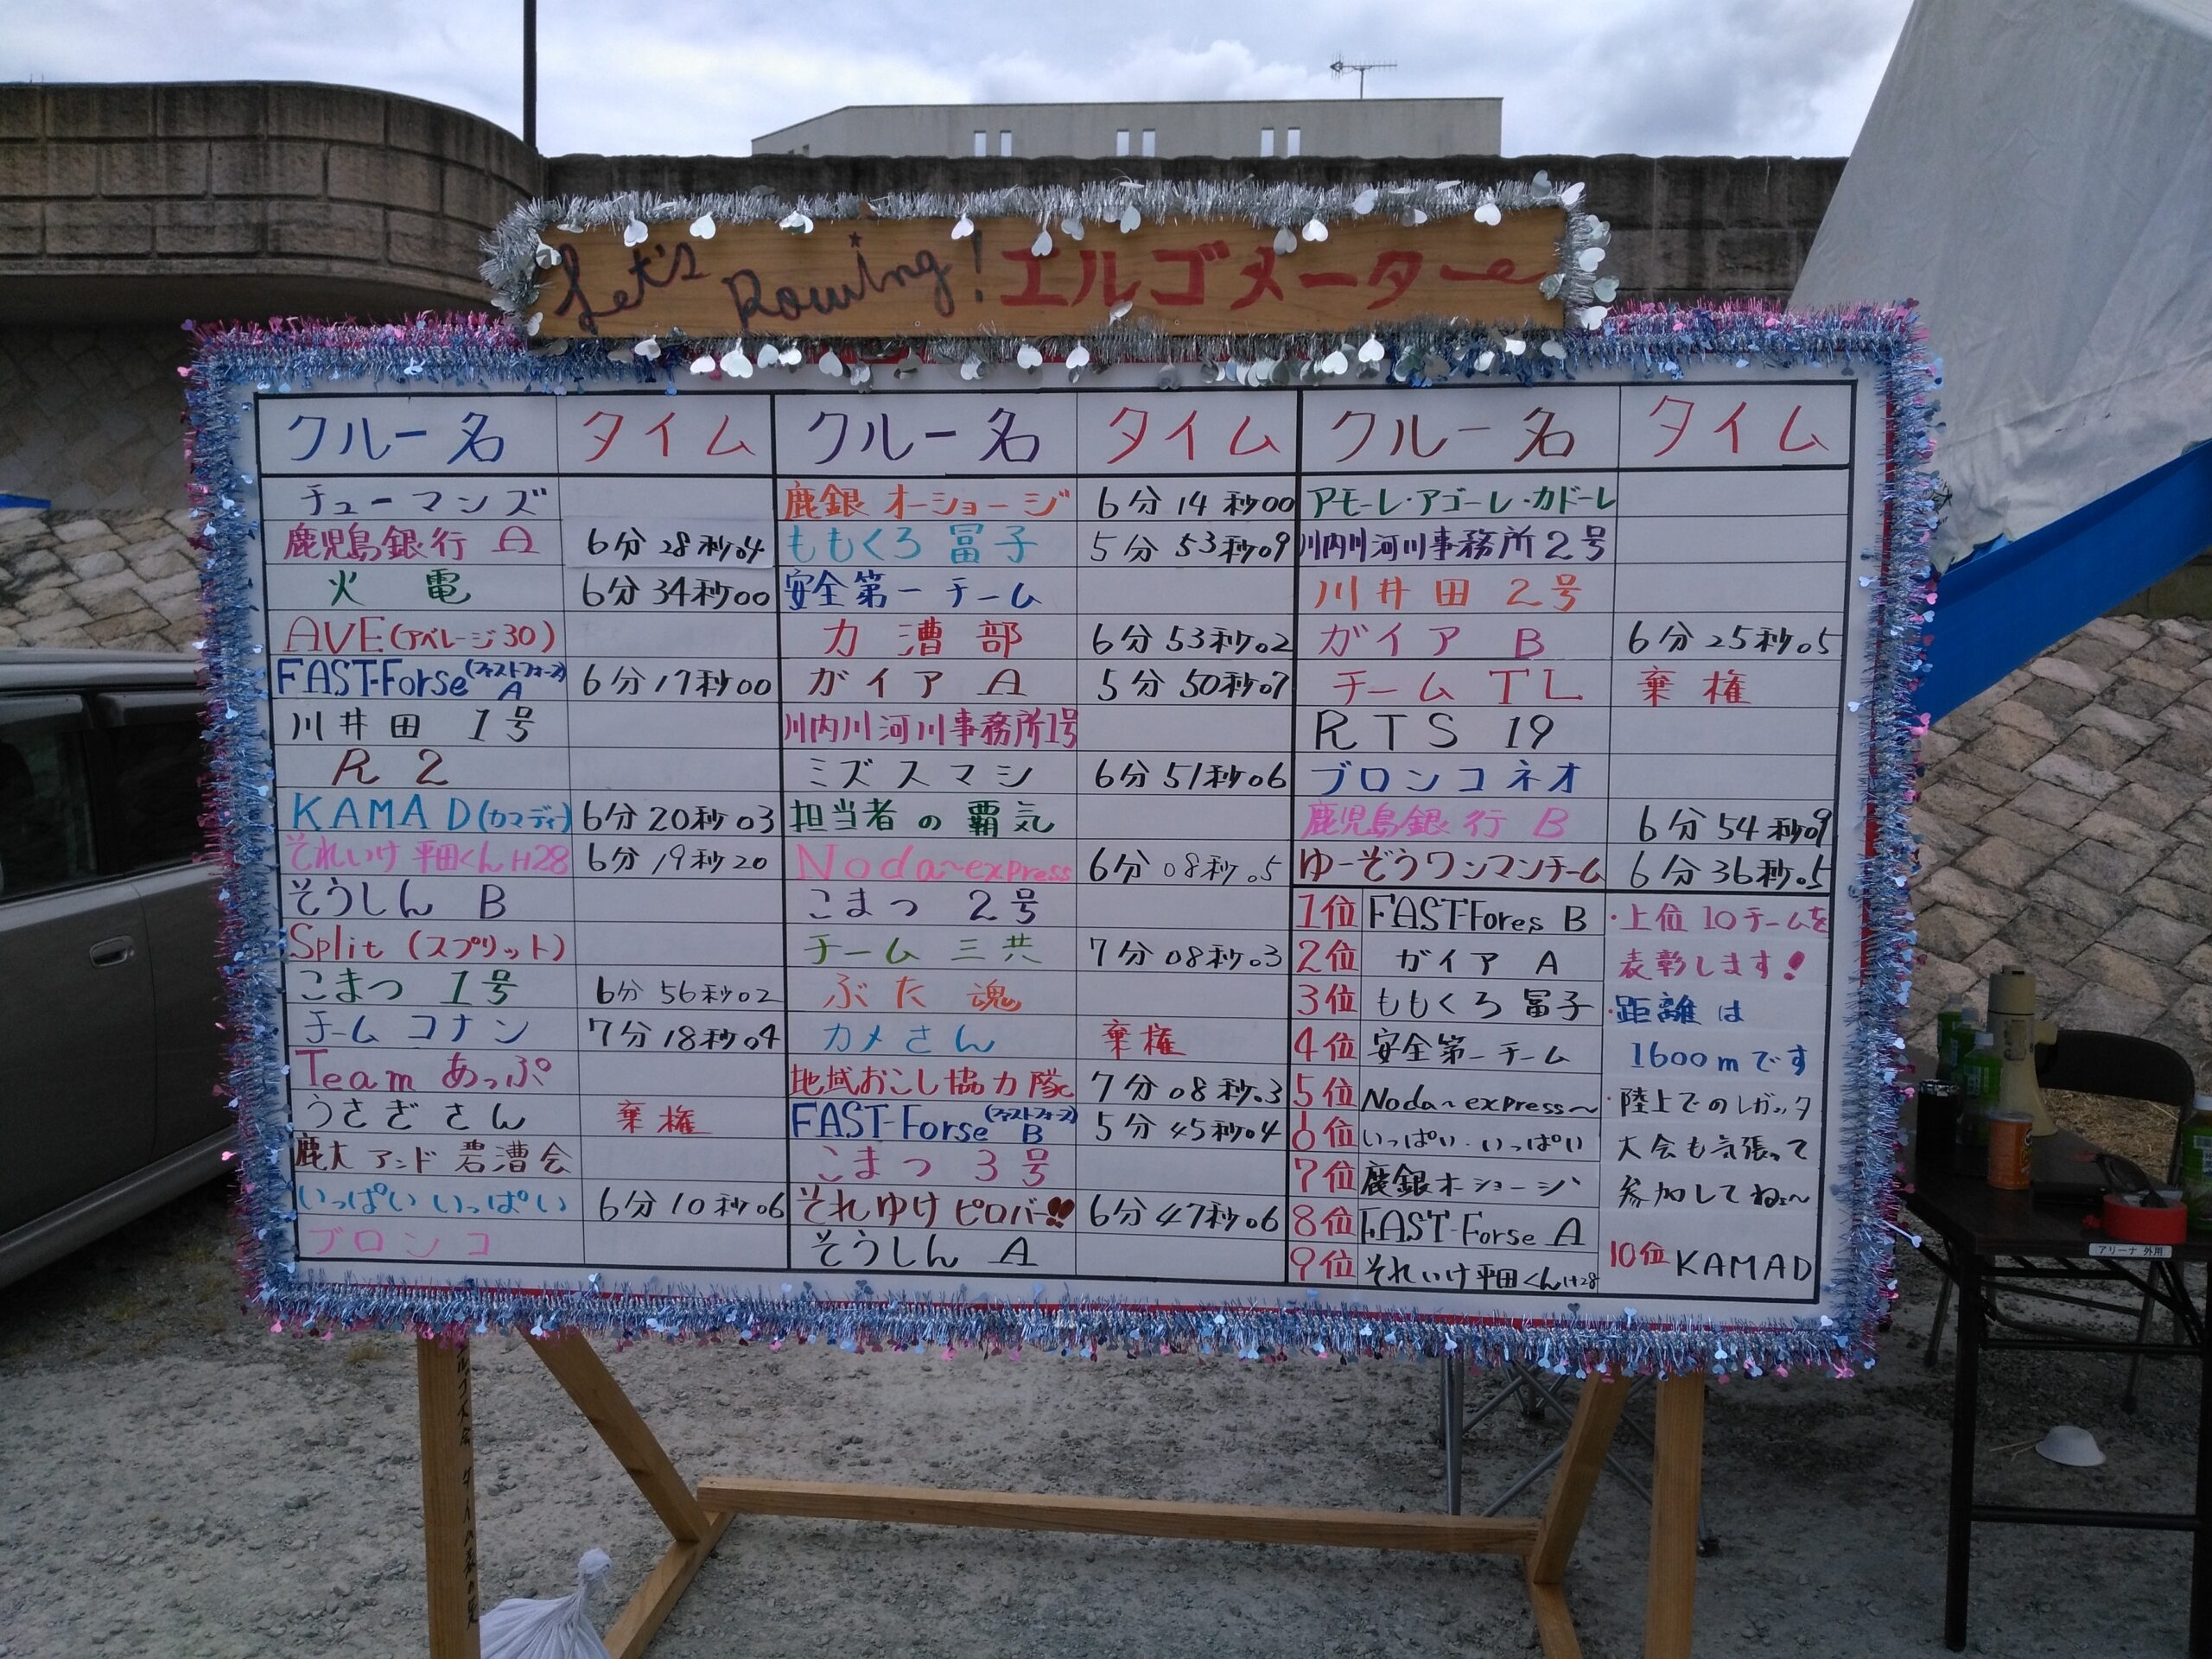 Let's Rowing! エルゴメーター
クルー名 タイム クルー名 タイム クルー名 タイム
チューマンズ
鹿児島銀行 A 6分28秒04
火電 6分34秒00
AVE(アベレージ30)
FAST-Forse(ファストフォース) A 6分17秒00
川井田 1号
R2
KAMAD(カマディ) 6分20秒03
それいけ平田くんH28 6分19秒20
そうしん B
Split (スプリット)
こまつ 1号 6分56秒02
チームコナン 7分18秒04
Team あっぷ
うさぎさん 棄権
鹿大アンド碧漕会
いっぱいいっぱい 6分10秒06
ブロンコ
鹿銀オーショージ 6分14秒00
ももくろ冨子 5分53秒09
安全第一チーム
力漕部 6分53秒02
ガイア A 5分50秒07
川内川河川事務所1号
ミズスマシ 6分51秒06
担当者の覇気
Noda~express 6分08秒.5
こまつ 2号
チーム三共 7分08秒.3
ぶた魂
カメさん 棄権
地域おこし協力隊 7分08秒.3
FAST-Forse(ファストフォース) B 5分45秒04
こまつ 3号
それゆけピロバー!! 6分47秒06
そうしん A
アモーレ・アゴーレ・カドーレ
川内川河川事務所2号
川井田 2号
ガイア B 6分25秒.5
チームTL 棄権
RTS 19
ブロンコネオ
鹿児島銀行 B 6分54秒09
ゆーぞうワンマンチーム 6分36秒.5
1位 FAST-Fores B
2位 ガイア A
3位 ももくろ冨子
4位 安全第一チーム
5位 Noda~express~
6位 いっぱい・いっぱい
7位 鹿銀オショージ
8位 FAST-Forse A
9位 それいけ平田くんH28
・上位10チームを
表彰します!
・距離は
1600mです
・陸上でのレガッタ
大会も気張って
参加してねぇ~
10位 KAMAD
アリーナ 外用